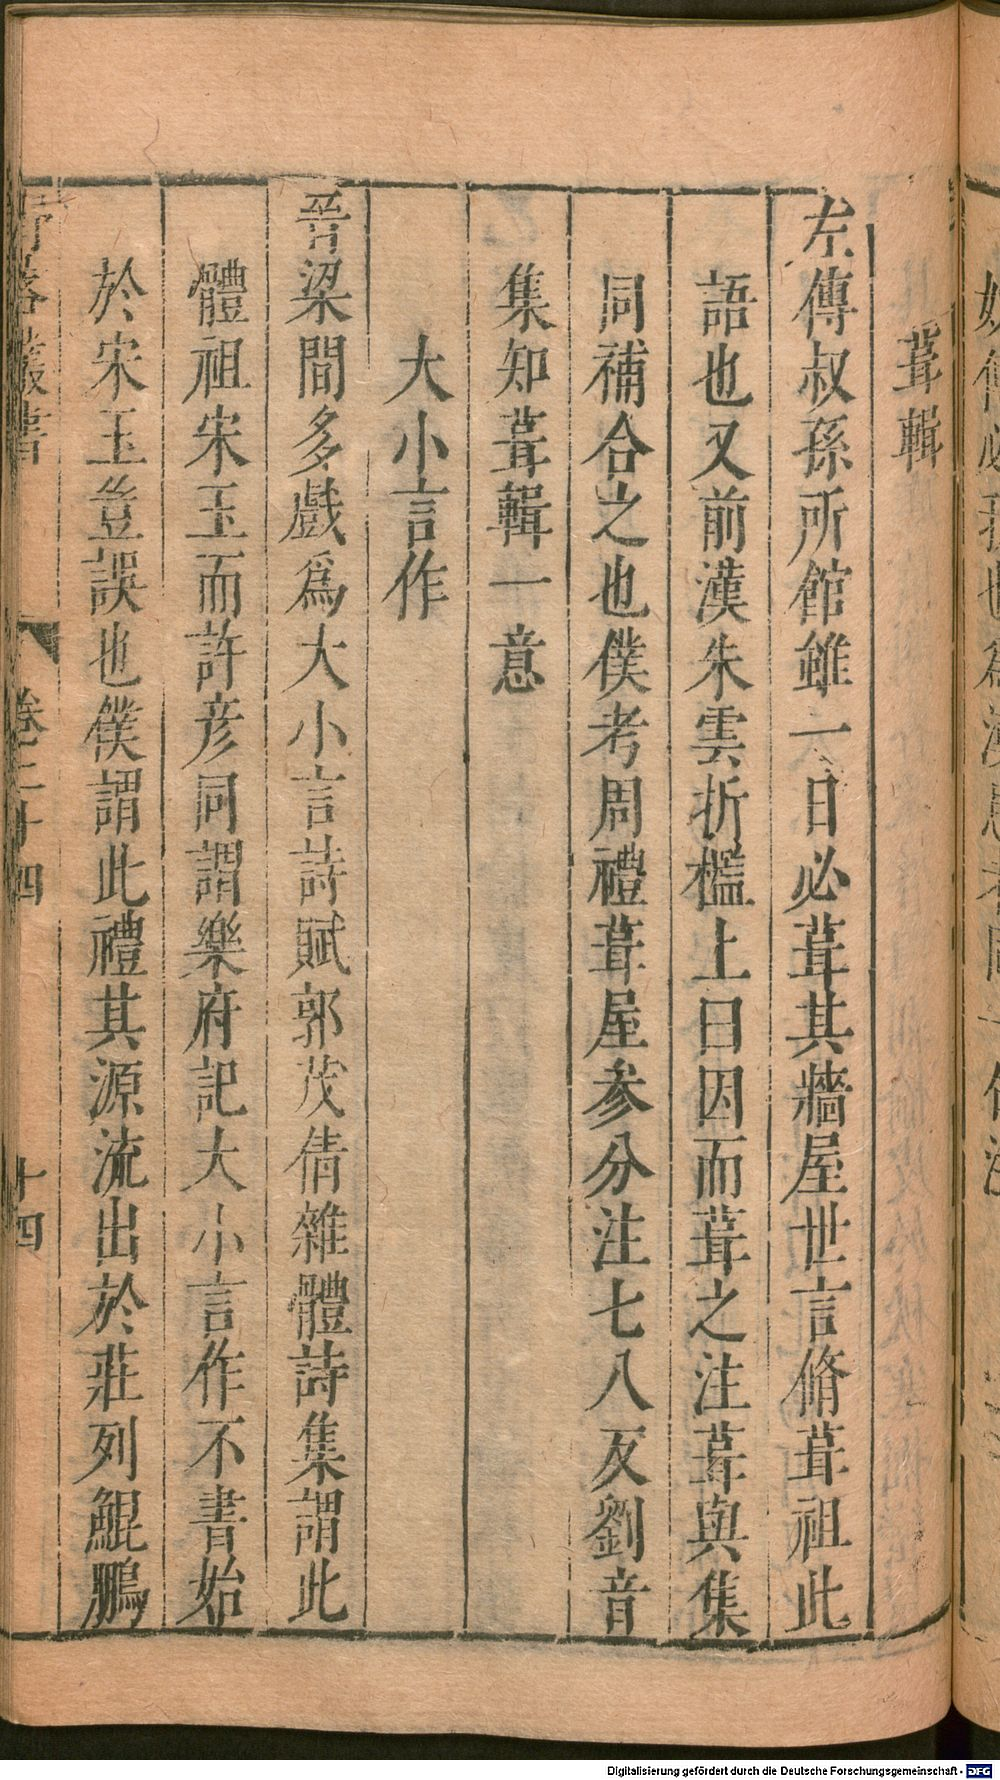 葺輯
左傳叔孫所館雖一日必葺其牆屋世言脩葺祖此
語也又前漢朱雲折檻上曰因而葺之注葺與集
同補合之也僕考周禮葺屋參分注七入反劉音
集知葺輯一意
大小言作
晉梁間多戲爲大小言詩賦郭茂倩雜體詩集謂此
體祖宋玉而許彦同謂樂府記大小言作不書始
於宋玉豈誤也僕謂此禮其源流出於莊列鯤鵬
野客叢書
卷二十四
十四
Digitalisierung gefördert durch die Deutsche Forschungsgemeinschaft - DFG